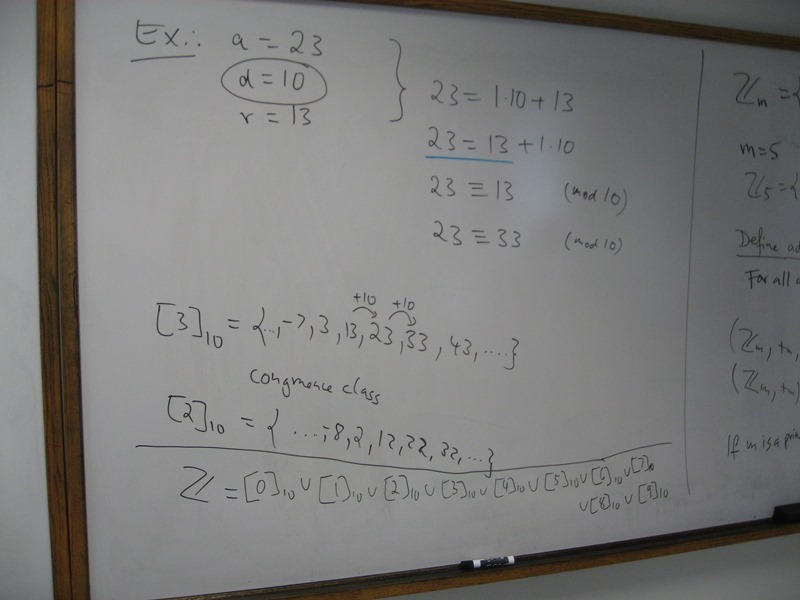 Ex.: a = 23
d = 10
r = 13
23 = 1·10 + 13
23 = 13 + 1·10
23 ≡ 13 (mod 10)
23 ≡ 33 (mod 10)
+10 +10
[3]₁₀ = {..., -7, 3, 13, 23, 33, 43, ....}
congruence class
[2]₁₀ = { ...., -8, 2, 12, 22, 32, ...}
ℤ = [0]₁₀ ∪ [1]₁₀ ∪ [2]₁₀ ∪ [3]₁₀ ∪ [4]₁₀ ∪ [5]₁₀ ∪ [6]₁₀ ∪ [7]₁₀
∪ [8]₁₀ ∪ [9]₁₀
ℤₘ = {
m = 5
ℤ₅ = {
Define
For all
(ℤₘ, +ₘ,
(ℤₘ, +ₘ)
If m is a